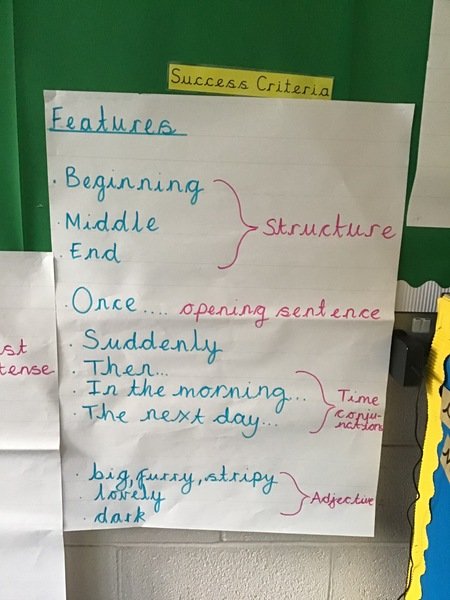 Success Criteria
Features
· Beginning
· Middle
· End
Structure
· Once.... opening sentence
· Suddenly
· Then...
· In the morning...
· The next day...
Time
conju-
nctions
· big, furry, stripy
· lovely
· dark
Adjective
st
tense